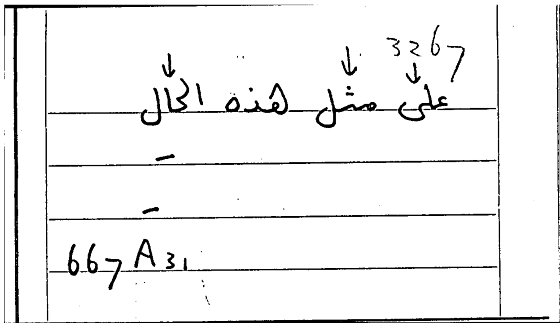 3267
على مثل هذه الحال
-
-
667 A31